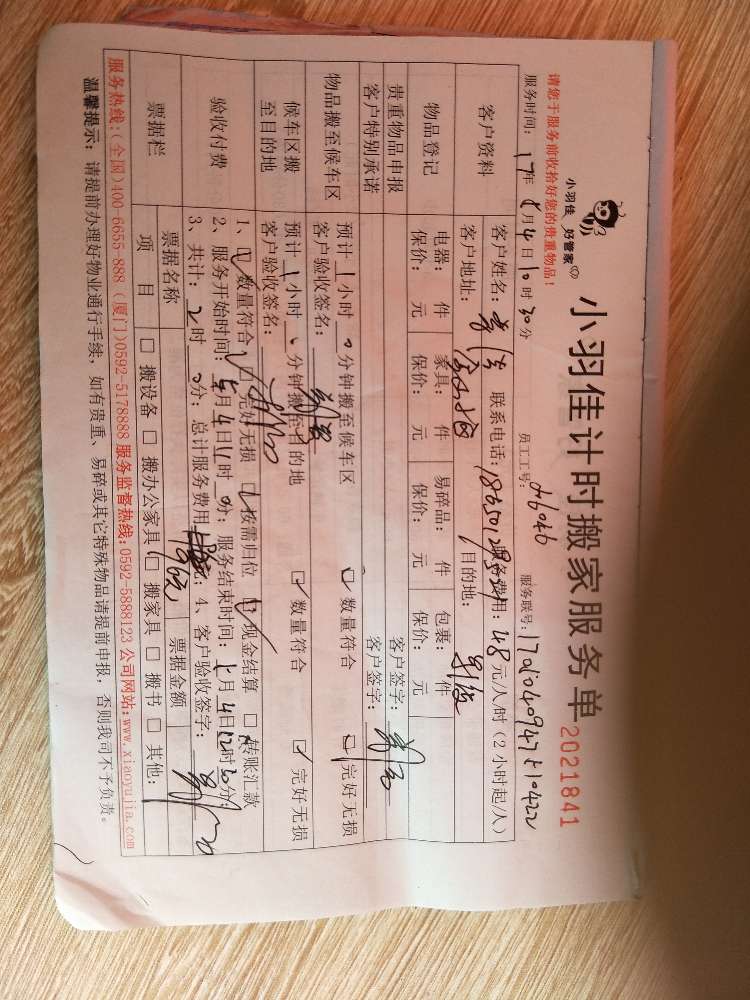 小羽佳 好管家
小羽佳计时搬家服务单 2021841
请您于服务前收拾好您的贵重物品!
服务时间: 17年 月4日10时30分 员工工号: 服务联号:
客户资料 客户姓名: 联系电话: 服务费用: 48元/人/时 (2小时起/人)
客户地址: 目的地:
物品登记 电器: 件 家具: 件 易碎品: 件 包裹: 件
保价: 元 保价: 元 保价: 元 保价: 元
贵重物品申报 客户签字:
客户特别承诺 客户签字:
物品搬至候车区 预计1小时0分钟搬至候车区 数量符合 完好无损
客户验收签名:
候车区搬至目的地 预计1小时 分钟搬至目的地 数量符合 完好无损
客户验收签名:
验收付费 1、数量符合 完好无损 按需归位 现金结算 转账汇款
2、服务开始时间: 月4日11时0分; 服务结束时间: 月4日12时30分;
3、共计: 2时0分; 总计服务费用: 元; 4、客户验收签字:
票据栏 票据名称 票据金额
项目 搬设备 搬办公家具 搬家具 搬书 其他:
服务热线:(全国)400-6655-888 (厦门)0592-5178888 服务监督热线:0592-5888123 公司网站:www.xiaoyujia.com
温馨提示: 请提前办理好物业通行手续, 如有贵重、易碎或其它特殊物品请提前申报, 否则我司不予负责。